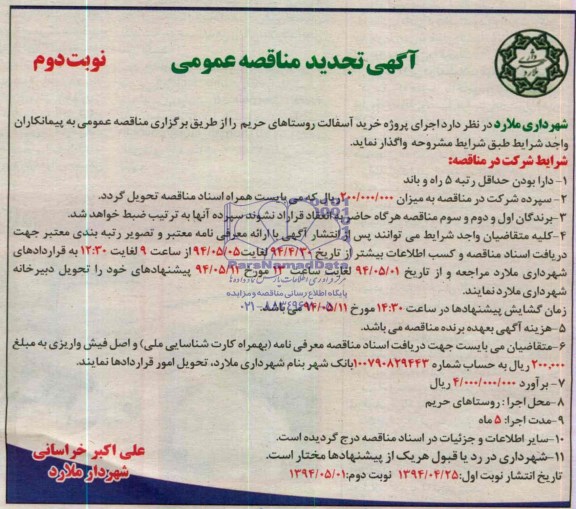 آگهی تجدید مناقصه عمومی
نوبت دوم
شهرداری ملارد در نظر دارد اجرای پروژه خرید آسفالت روستاهای حریم را از طریق برگزاری مناقصه عمومی به پیمانکاران
واجد شرایط طبق شرایط مشروحه واگذار نماید.
شرایط شرکت در مناقصه:
۱- دارا بودن حداقل رتبه ۵ راه و باند
۲- سپرده شرکت در مناقصه به میزان ۲۰۰/۰۰۰/۰۰۰ ریال که می بایست همراه اسناد مناقصه تحویل گردد.
۳- برندگان اول و دوم و سوم مناقصه هرگاه حاضر به انعقاد قرارداد نشوند سپرده آنها به ترتیب ضبط خواهد شد.
۴- کلیه متقاضیان واجد شرایط می توانند پس از انتشار آگهی با ارائه معرفی نامه معتبر و تصویر رتبه بندی معتبر جهت
دریافت اسناد مناقصه و کسب اطلاعات بیشتر از تاریخ ۹۴/۴/۳۱ لغایت ۹۴/۰۵/۰۵ از ساعت ۹ لغایت ۱۲:۳۰ به قراردادهای
شهرداری ملارد مراجعه و از تاریخ ۹۴/۰۵/۰۱ لغایت ساعت ۱۲ مورخ ۹۴/۰۵/۱۱ پیشنهادهای خود را تحویل دبیرخانه
شهرداری ملارد نمایند.
زمان گشایش پیشنهادها در ساعت ۱۴:۳۰ مورخ ۹۴/۰۵/۱۱ می باشد.
۵- هزینه آگهی بعهده برنده مناقصه می باشد.
۶- متقاضیان می بایست جهت دریافت اسناد مناقصه معرفی نامه (بهمراه کارت شناسایی ملی) و اصل فیش واریزی به مبلغ
۲۰۰,۰۰۰ ریال به حساب شماره ۱۰۰۷۹۰۸۲۹۴۴۳ بانک شهر بنام شهرداری ملارد، تحویل امور قراردادها نمایند.
۷- برآورد ۴/۰۰۰/۰۰۰/۰۰۰ ریال
۸- محل اجرا: روستاهای حریم
۹- مدت اجرا: ۵ ماه
۱۰- سایر اطلاعات و جزئیات در اسناد مناقصه درج گردیده است.
۱۱- شهرداری در رد یا قبول هر یک از پیشنهادها مختار است.
تاریخ انتشار نوبت اول: ۱۳۹۴/۰۴/۲۵ نوبت دوم: ۱۳۹۴/۰۵/۰۱
علی اکبر خراسانی
شهردار ملارد
ParsNamadData
پایگاه اطلاع رسانی مناقصه و مزایده